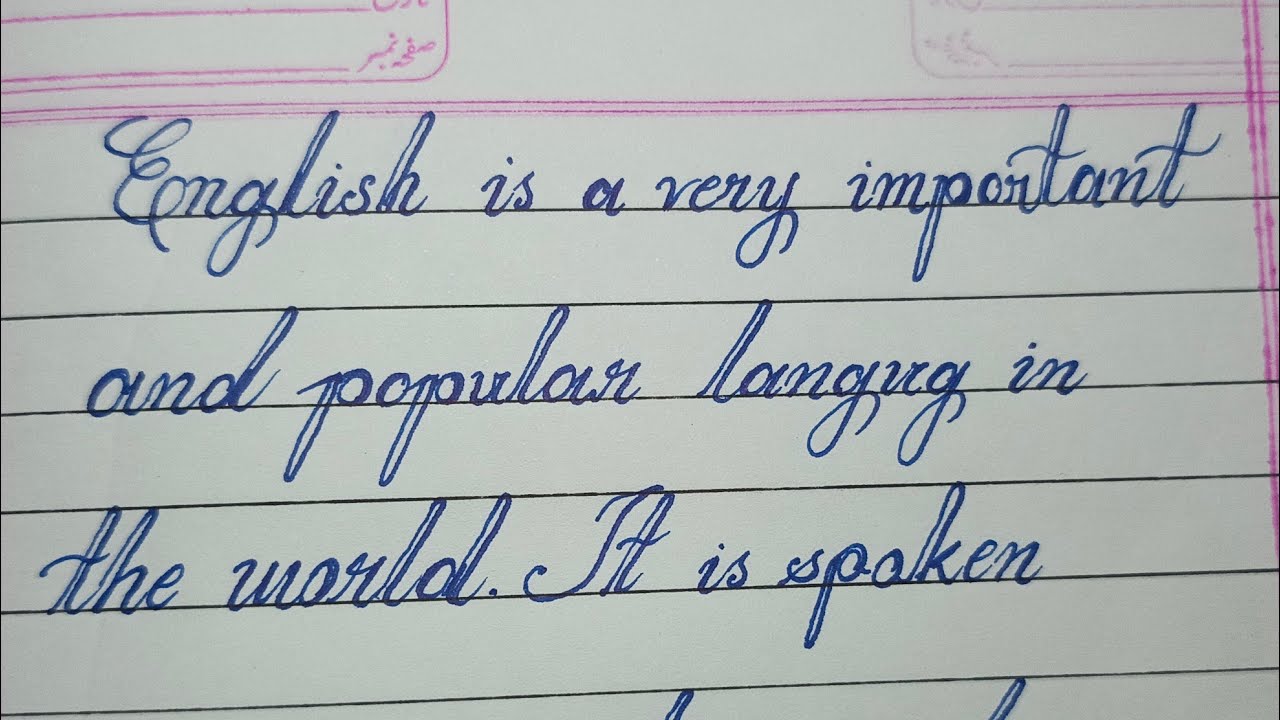 صفحہ نمبر
English is a very important
and popular langug in
the world. It is spoken